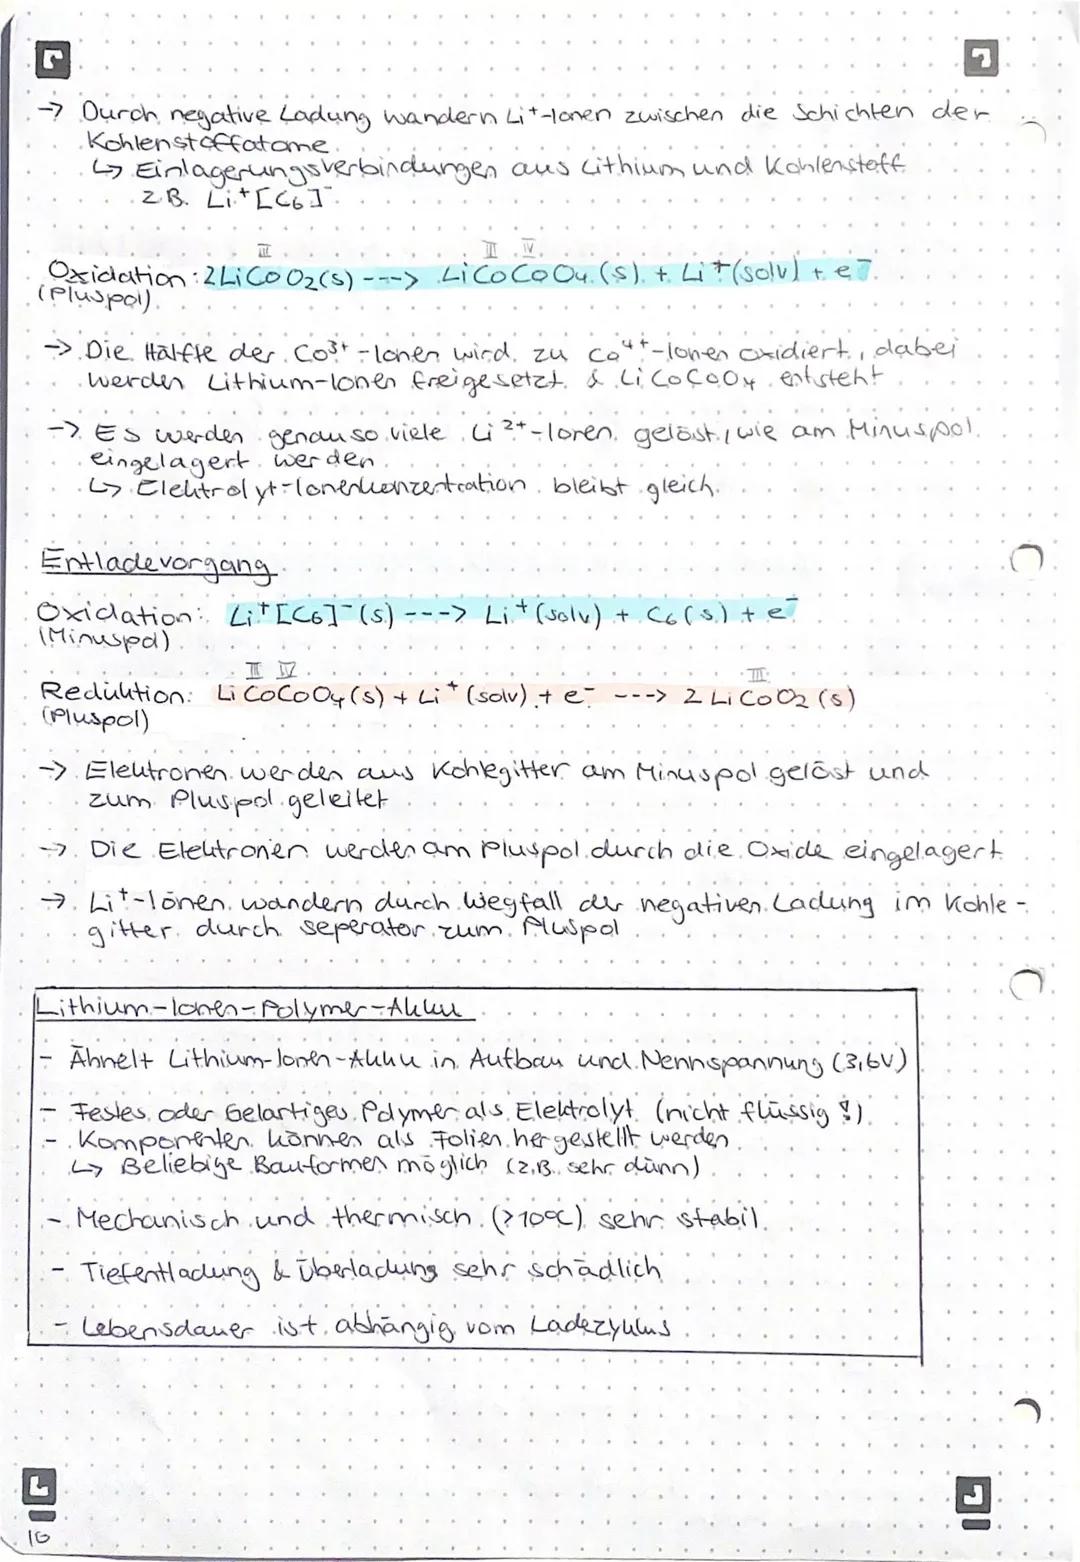 → Durch negative Ladung wandern Li⁺-Ionen zwischen die Schichten der
Kohlenstoffatome
↳ Einlagerungsverbindungen aus Lithium und Kohlenstoff
z.B. Li⁺[C₆]⁻
III III IV
Oxidation: 2LiCoO₂(s) ---> LiCoCoO₄(s) + Li⁺(solv) + e⁻
(Pluspol)
→ Die Hälfte der Co³⁺-Ionen wird zu Co⁴⁺-Ionen oxidiert, dabei
werden Lithium-Ionen freigesetzt & LiCoCoO₄ entsteht
→ Es werden genauso viele Li²⁺-Ionen gelöst, wie am Minuspol
eingelagert werden
↳ Elektrolyt-Ionenkonzentration bleibt gleich.
Entladevorgang
Oxidation: Li⁺[C₆]⁻(s) ---> Li⁺(solv) + C₆(s) + e⁻
(Minuspol)
III IV III
Reduktion: LiCoCoO₄(s) + Li⁺(solv) + e⁻ ---> 2 LiCoO₂(s)
(Pluspol)
→ Elektronen werden aus Kohlegitter am Minuspol gelöst und
zum Pluspol geleitet
→ Die Elektronen werden am Pluspol durch die Oxide eingelagert
→ Li⁺-Ionen wandern durch Wegfall der negativen Ladung im Kohle-
gitter durch seperator zum Pluspol
Lithium-Ionen-Polymer-Akku
- Ähnelt Lithium-Ionen-Akku in Aufbau und Nennspannung (3,6V)
- Festes oder Gelartiges Polymer als Elektrolyt (nicht flüssig!)
- Komponenten können als Folien hergestellt werden
↳ Beliebige Bauformen möglich (z.B. sehr dünn)
- Mechanisch und thermisch (>70°C) sehr stabil
- Tiefentladung & Überladung sehr schädlich
- Lebensdauer ist abhängig vom Ladezyklus